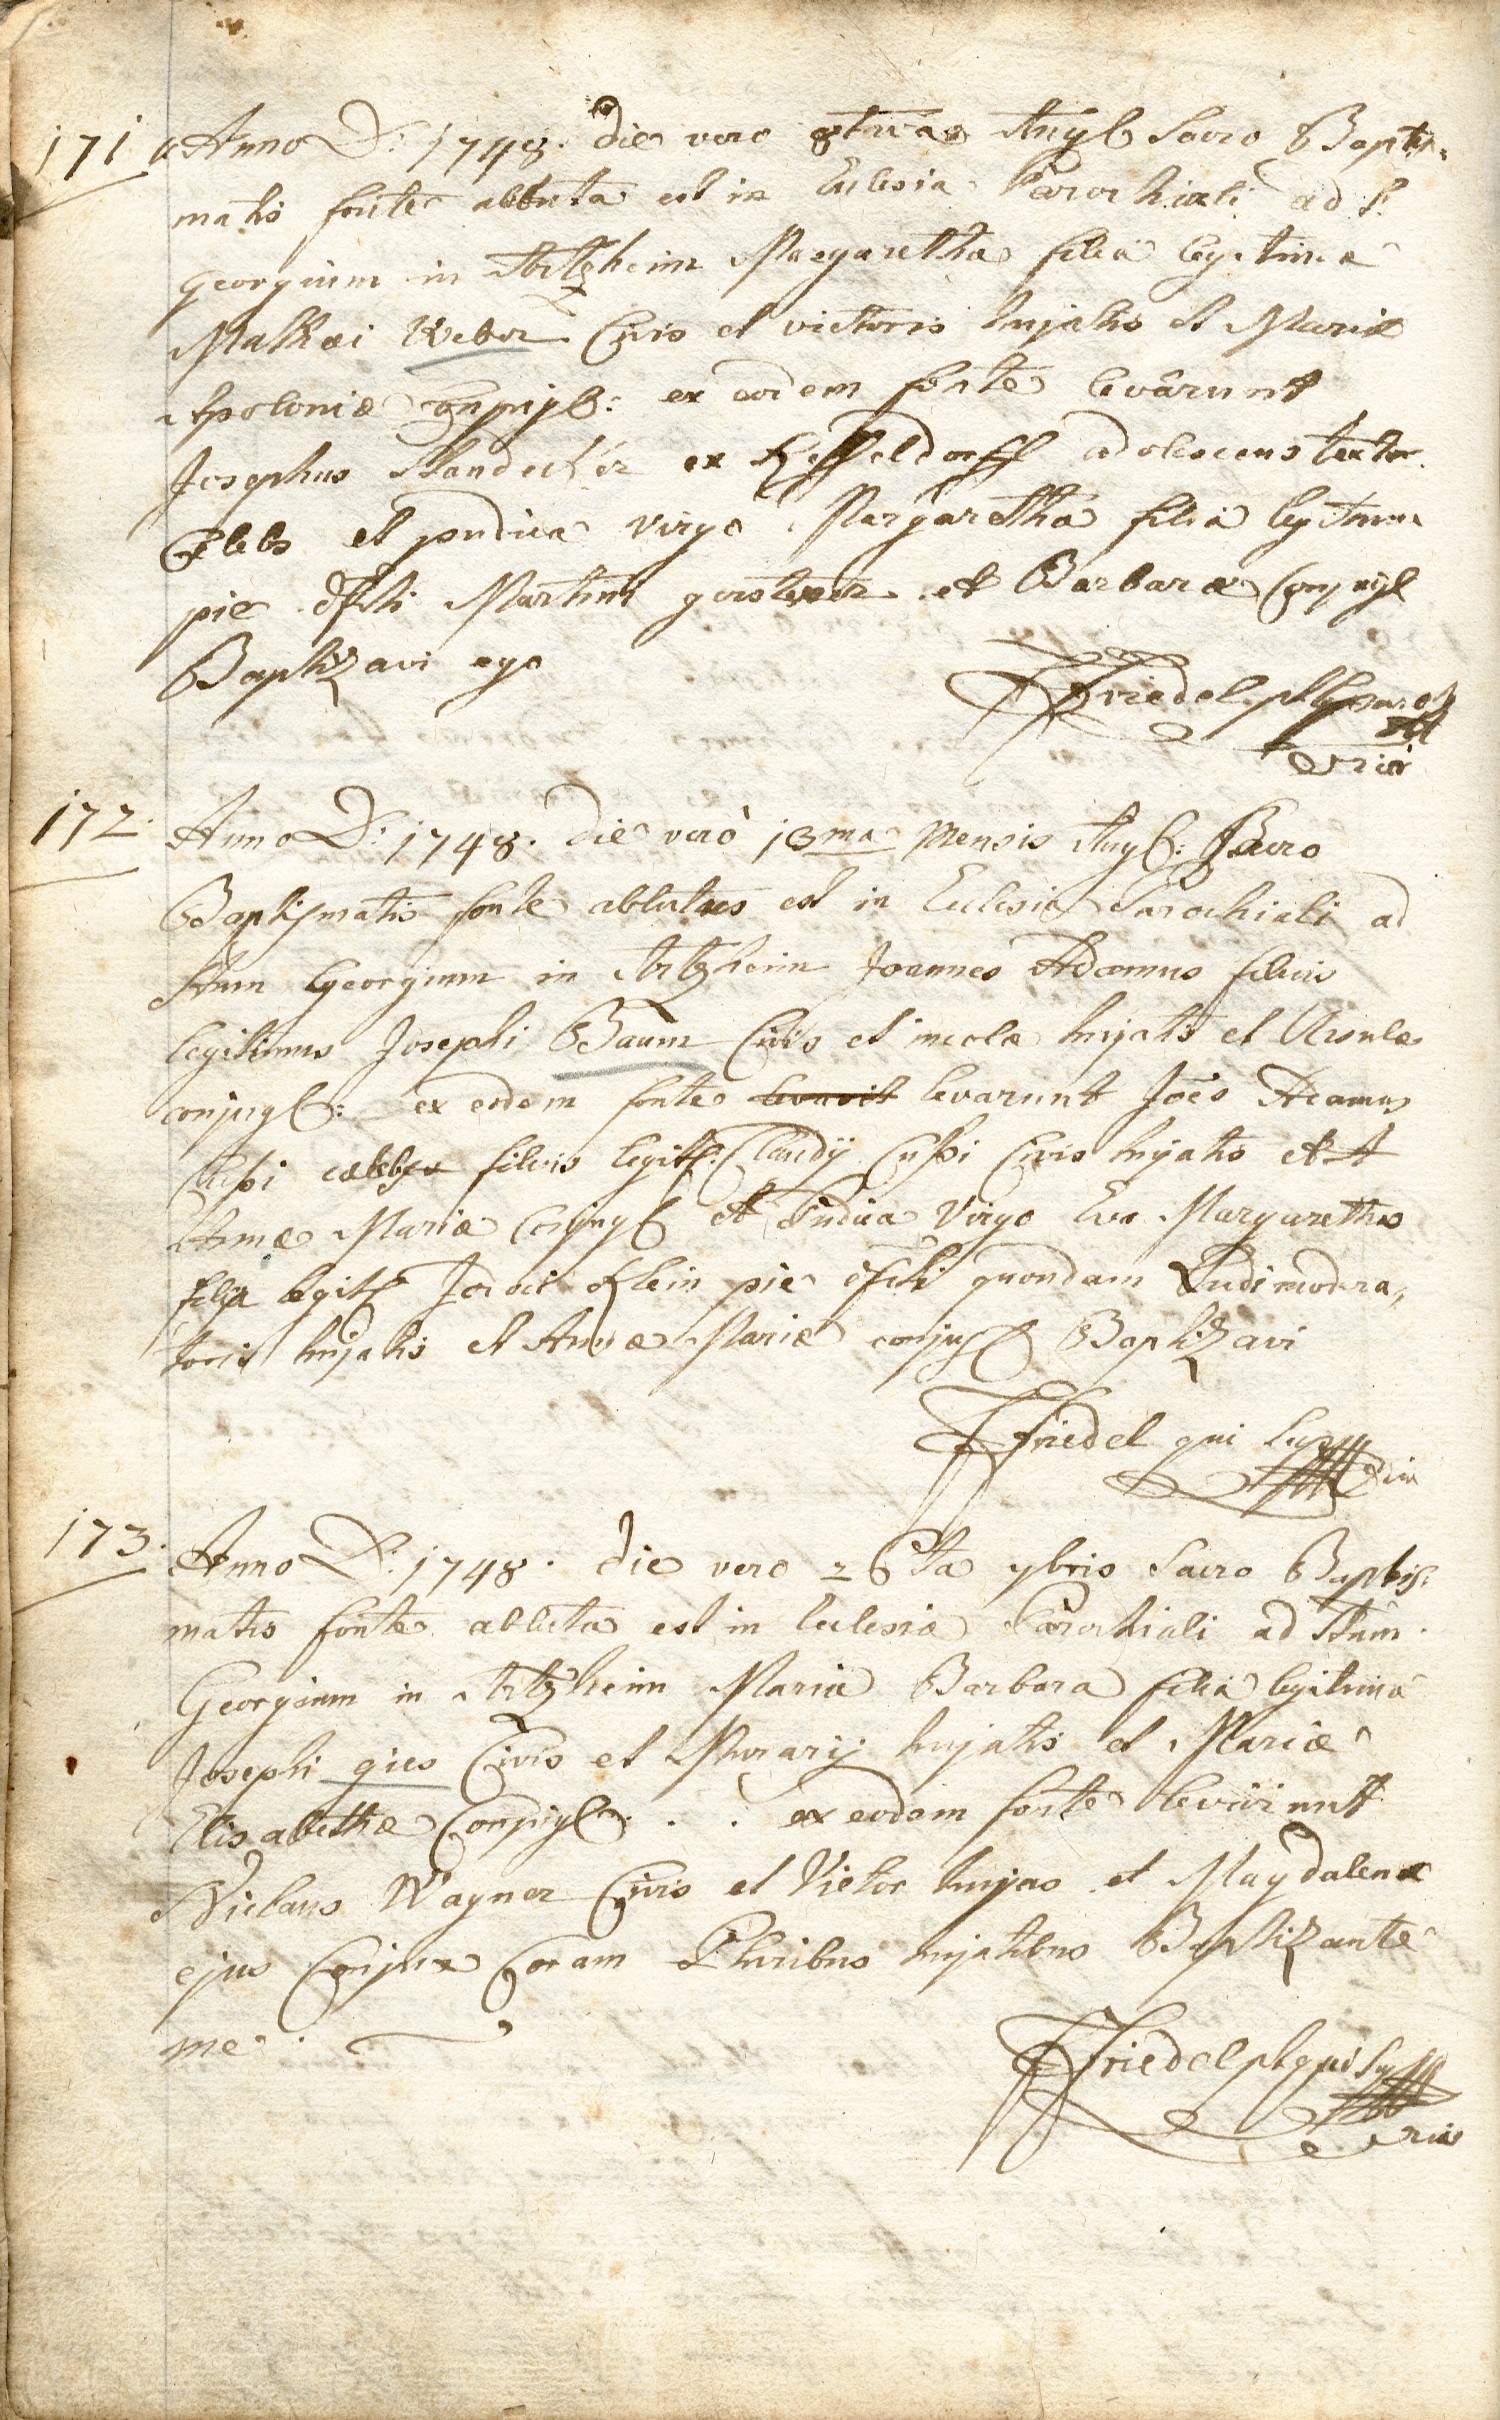 171 Anno D: 1748. die vero 8tava Augß Sacro Baptis=
matis fonte abluta est in Eclesia Parochiali ad S.
Georgium in Artzheim Margaretha filia legitima
Mathæi Weber Civis et vietoris hujatis et Mariæ
Apoloniæ Conjugß: ex eodem fonte levârunt
Josephus ex Keffeldorff adolescens textor
Cælebs et pudica Virgo Margaretha filia legitima
pie dfcti Martini et Barbaræ Conjugß
Baptizavi ego
Friedel
172. Anno D: 1748. die verò 13ma Mensis Augß: Sacro
Baptismatis fonte ablutus est in Eclesia Parochiali ad
Stum Georgium in Artzheim Joannes Adamus filius
legitimus Josephi Baum Civis et incolæ hujatis et Ursulæ
conjugß: ex eodem fonte levavit levarunt Joës Adamus
filius legitß: Claudij Civis hujatis et
Annæ Mariæ Conjugß et Pudica Virgo Eva Margaretha
filia legitß Jodoci Klein pie dfcti quondam Ludimodera,,
toris hujatis et Annæ Mariæ conjugß Baptizavi
Friedel qui supra
173. Anno D: 1748. die vero 26ta 7bris Sacro Baptis:
matis fonte abluta est in Eclesia Parochiali ad Stum
Georgium in Artzheim Maria Barbara filia legitima
Josephi gies Civis et Murarij hujatis et Mariæ
Elisabethæ Conjugß: . . ex eodem fonte levârunt
Niclaus Wagner Civis et Vietor hujas et Magdalena
ejus Conjux Coram Pluribus hujatibus Baptizante
me.
Friedel qui